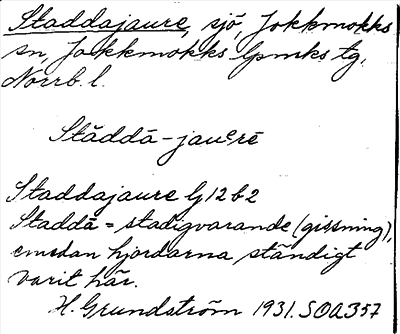 Staddajaure, sjö, Jokkmokks
sn, Jokkmokks lpmks tg,
Norrb. l.
Stăddā-jauᵉrē
Staddajaure G12b2
Staddā = stadigvarande (gissning),
emedan hjordarna ständigt
varit här.
H. Grundström 1931. SOA357